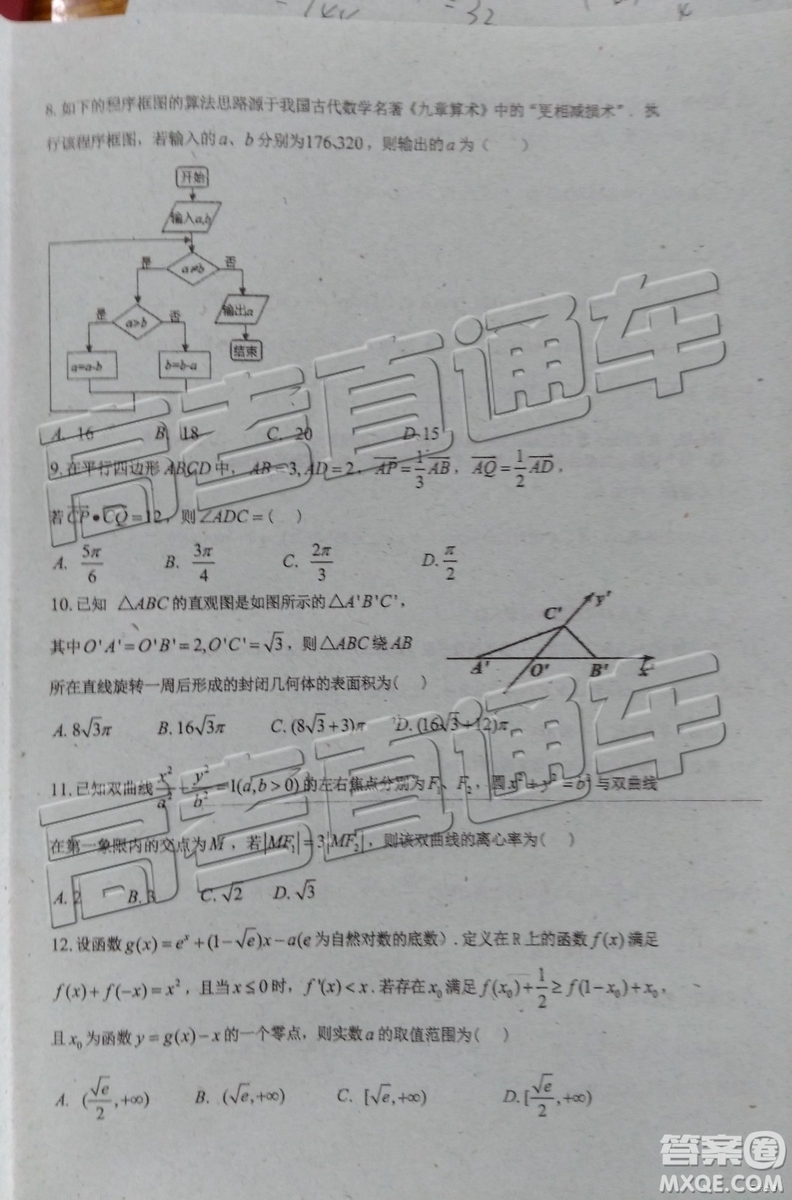 = 32
8.如下的程序框图的算法思路源于我国古代数学名著《九章算术》中的“更相减损术”.执
行该程序框图，若输入的a、b分别为176,320，则输出的a为（ ）
开始
输入a,b
是 a≠b 否
是 a>b 否 输出a
a=a-b b=b-a 结束
A. 16 B. 18 C. 20 D.15
9.在平行四边形ABCD中，AB=3,AD=2，$\overrightarrow{AP}=\frac{1}{3}\overrightarrow{AB}$，$\overrightarrow{AQ}=\frac{1}{2}\overrightarrow{AD}$，
若$\overrightarrow{CP}•\overrightarrow{CQ}=12$，则∠ADC=( )
A. $\frac{5π}{6}$ B. $\frac{3π}{4}$ C. $\frac{2π}{3}$ D. $\frac{π}{2}$
10.已知 △ABC的直观图是如图所示的△A'B'C'，
其中O'A'=O'B'=2,O'C'=√3，则△ABC绕AB
所在直线旋转一周后形成的封闭几何体的表面积为( )
y'
C'
A' O' B' x'
A.8√3π B.16√3π C.(8√3+3)π D.(16√3+12)π
11.已知双曲线$\frac{x^2}{a^2}-\frac{y^2}{b^2}=1(a,b>0)$的左右焦点分别为F₁、F₂，圆x²+y²=b²与双曲线
在第一象限内的交点为M，若|MF₁|=3|MF₂|，则该双曲线的离心率为( )
A. 2 B. 3 C. √2 D. √3
12.设函数g(x)=eˣ+(1-√e)x-a(e为自然对数的底数).定义在R上的函数f(x)满足
f(x)+f(-x)=x²，且当x≤0时，f'(x)<x.若存在x₀满足f(x₀)+$\frac{1}{2}$≥f(1-x₀)+x₀，
且x₀为函数y=g(x)-x的一个零点，则实数a的取值范围为( )
A. ($\frac{\sqrt{e}}{2}$,+∞) B. (√e,+∞) C. [√e,+∞) D.[$\frac{\sqrt{e}}{2}$,+∞)
高考直通车
高考直通车
答案圈
MXQE.COM